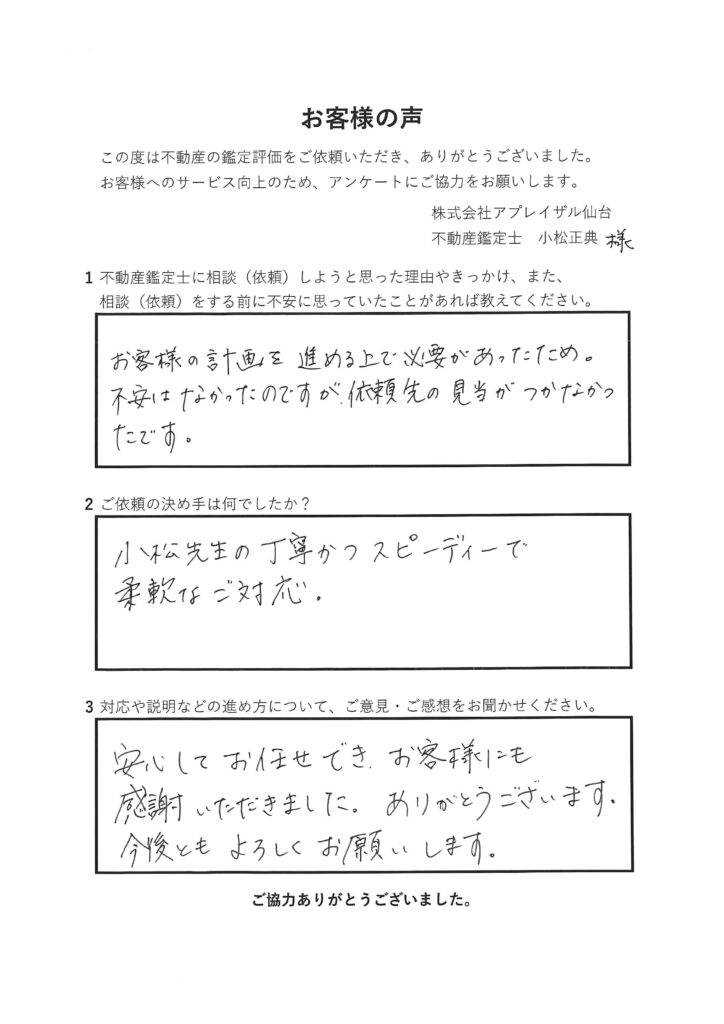 お客様の声
この度は不動産の鑑定評価をご依頼いただき、ありがとうございました。
お客様へのサービス向上のため、アンケートにご協力をお願いします。
株式会社アプレイザル仙台
不動産鑑定士 小松正典 様
1 不動産鑑定士に相談（依頼）しようと思った理由やきっかけ、また、
相談（依頼）をする前に不安に思っていたことがあれば教えてください。
お客様の計画を進める上で必要があったため。
不安はなかったのですが、依頼先の見当がつかなかっ
たです。
2 ご依頼の決め手は何でしたか？
小松先生の丁寧かつスピーディーで
柔軟なご対応。
3 対応や説明などの進め方について、ご意見・ご感想をお聞かせください。
安心してお任せでき、お客様にも
感謝いただきました。ありがとうございます。
今後ともよろしくお願いします。
ご協力ありがとうございました。